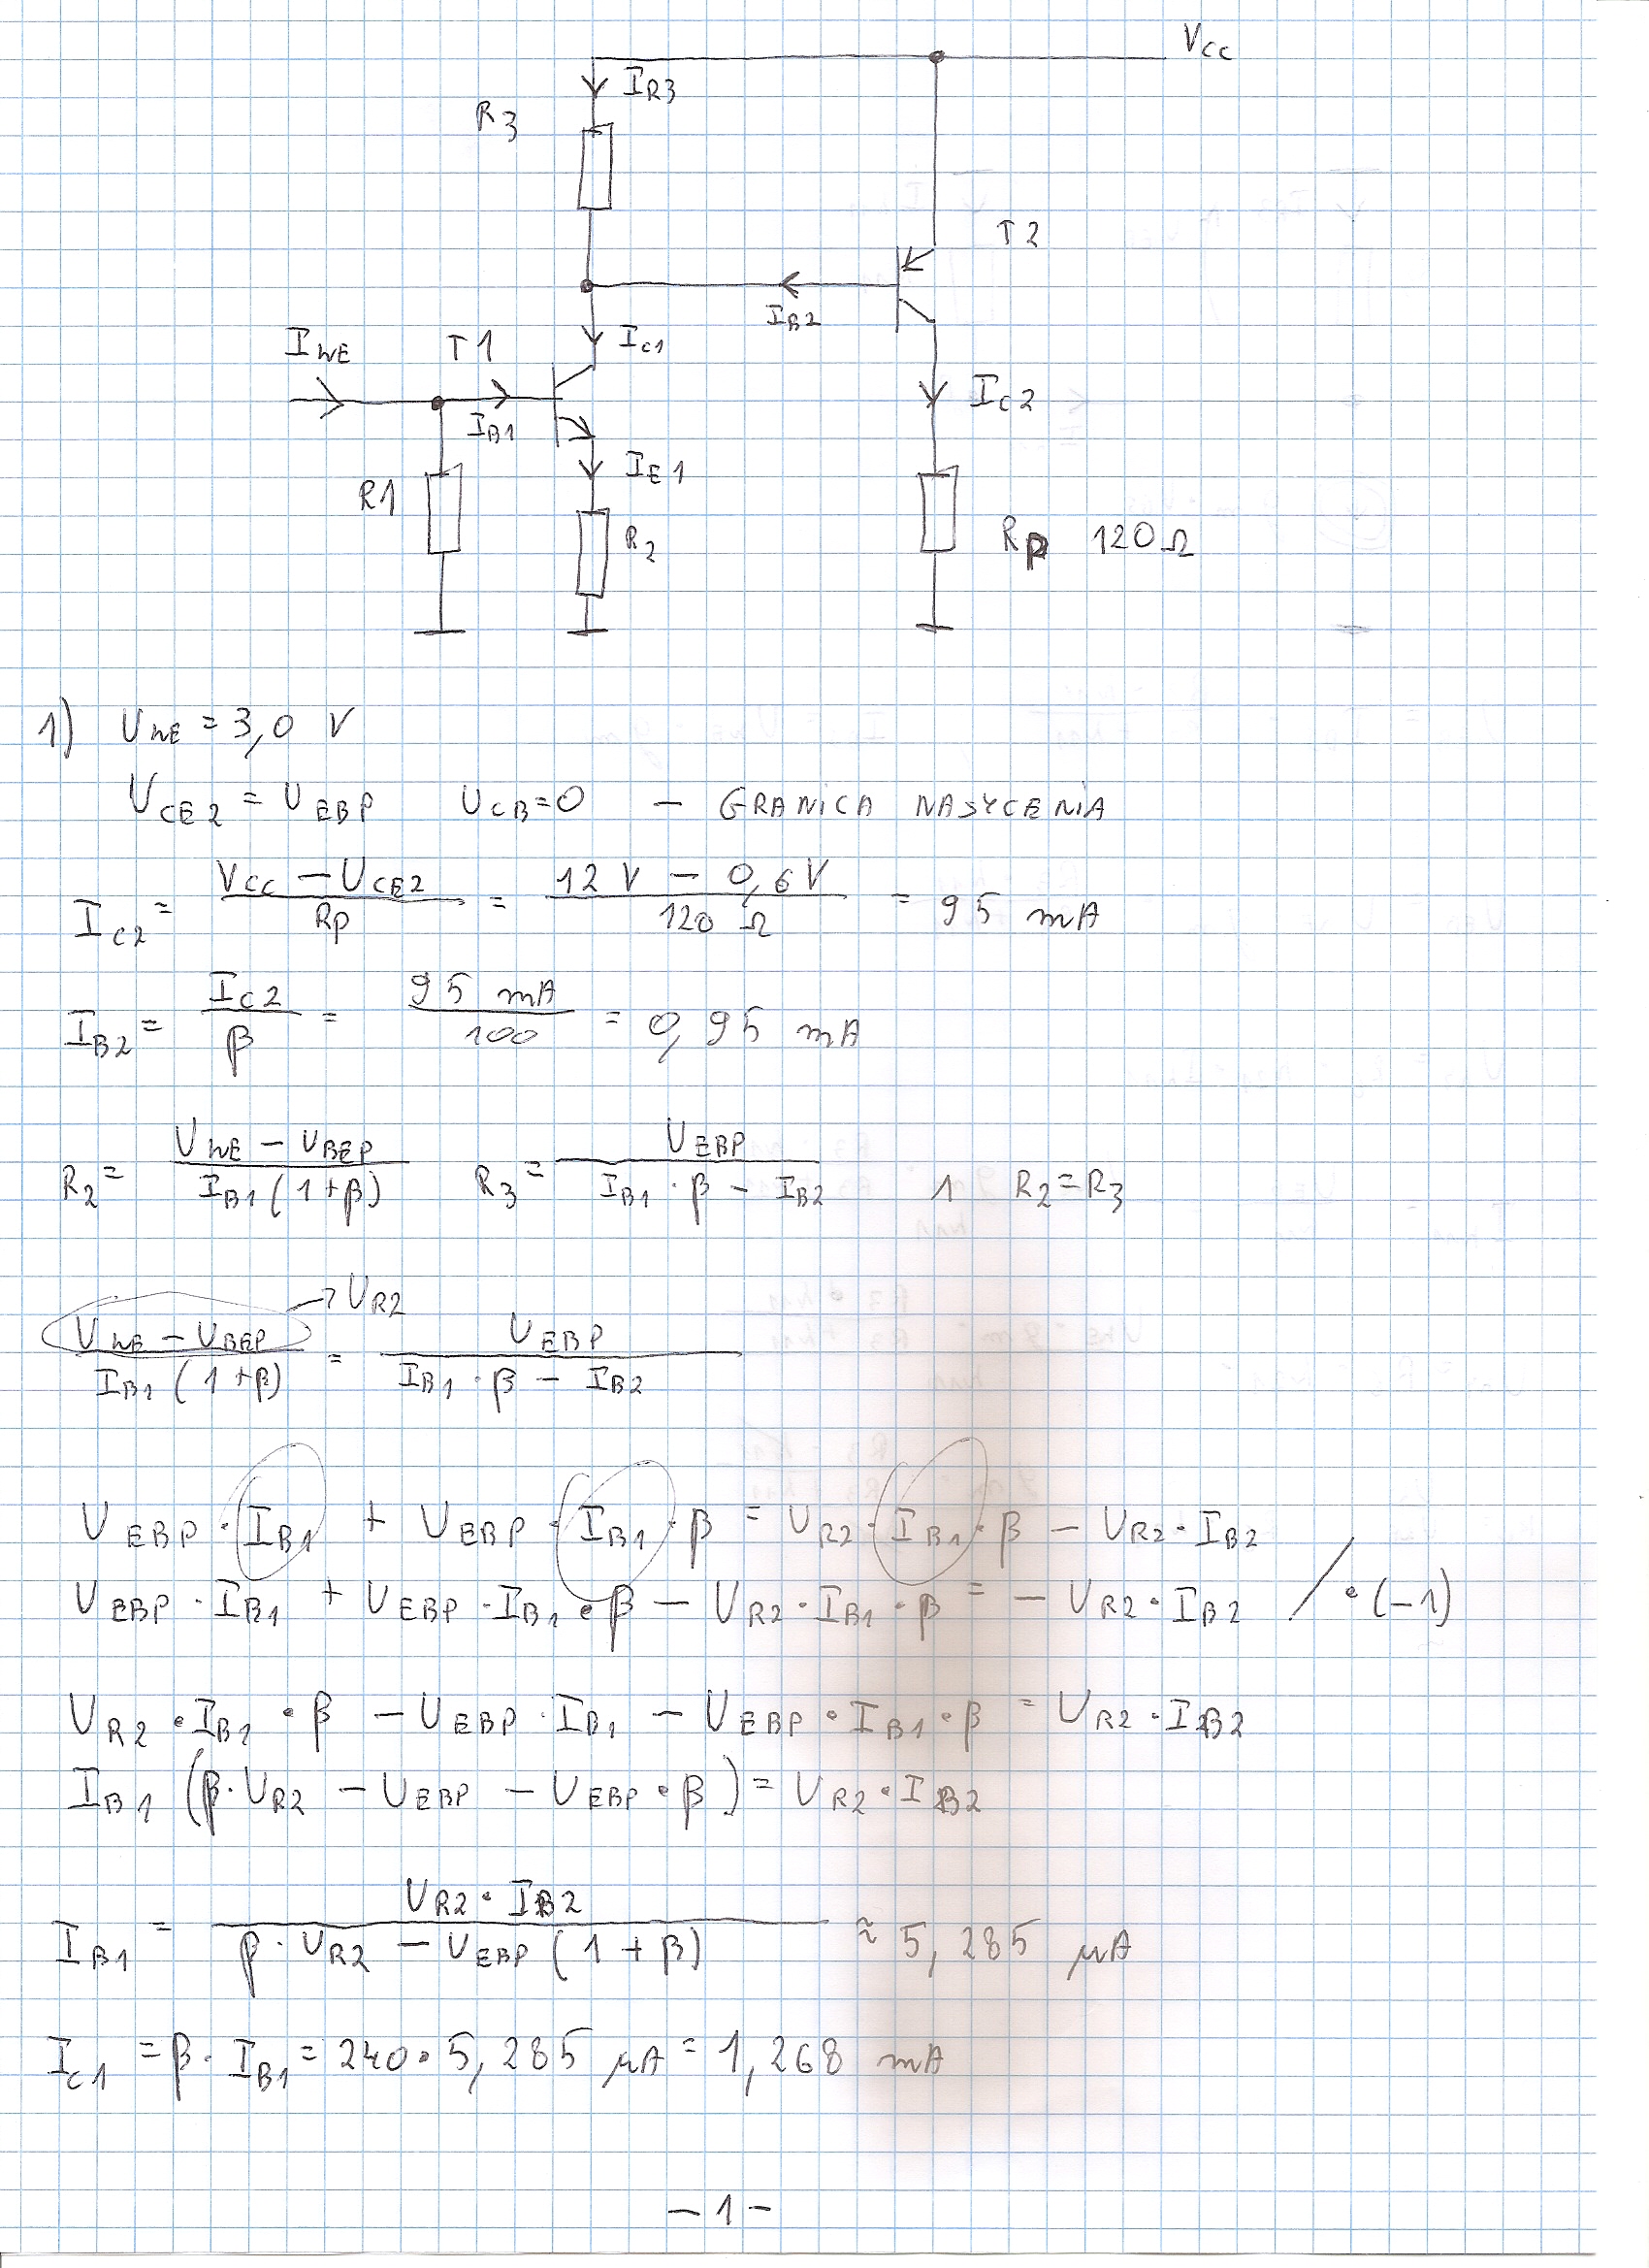 V_CC
I_R3
R_3
T2
I_B2
I_WE T1 I_C1
I_B1 I_C2
R1 I_E1
R_2 R_P 120Ω
1) U_WE = 3,0 V
U_CE2 = U_EBP U_CB=0 – GRANICA NASYCENIA
I_C2 = (V_CC – U_CE2) / R_P = (12 V – 0,6 V) / 120 Ω = 95 mA
I_B2 = I_C2 / β = 95 mA / 100 = 0,95 mA
R_2 = (U_WE – U_BEP) / (I_B1 (1+β)) R_3 = U_EBP / (I_B1 · β – I_B2) 1 R_2 = R_3
→ U_R2
(U_WE – U_BEP) / (I_B1 (1+β)) = U_EBP / (I_B1 · β – I_B2)
U_EBP · I_B1 + U_EBP · I_B1 · β = U_R2 · I_B1 · β – U_R2 · I_B2
U_EBP · I_B1 + U_EBP · I_B1 · β – U_R2 · I_B1 · β = – U_R2 · I_B2 / · (–1)
U_R2 · I_B1 · β – U_EBP · I_B1 – U_EBP · I_B1 · β = U_R2 · I_B2
I_B1 (β · U_R2 – U_EBP – U_EBP · β) = U_R2 · I_B2
I_B1 = (U_R2 · I_B2) / (β · U_R2 – U_EBP (1 + β)) ≈ 5,285 μA
I_C1 = β · I_B1 = 240 · 5,285 μA = 1,268 mA
– 1 –